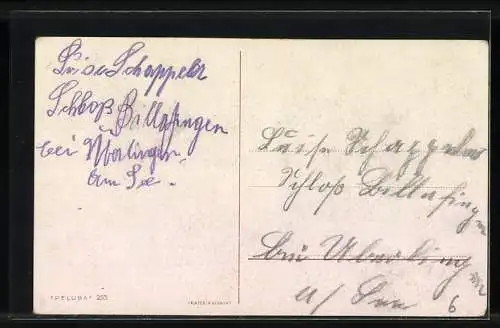 Luise Schappeler
Schloß Billafingen
bei Überlingen
am See.
Luise Schappeler
Schloß Billafingen
bei Überlingen
a/ See
6
"PELUBA" 255